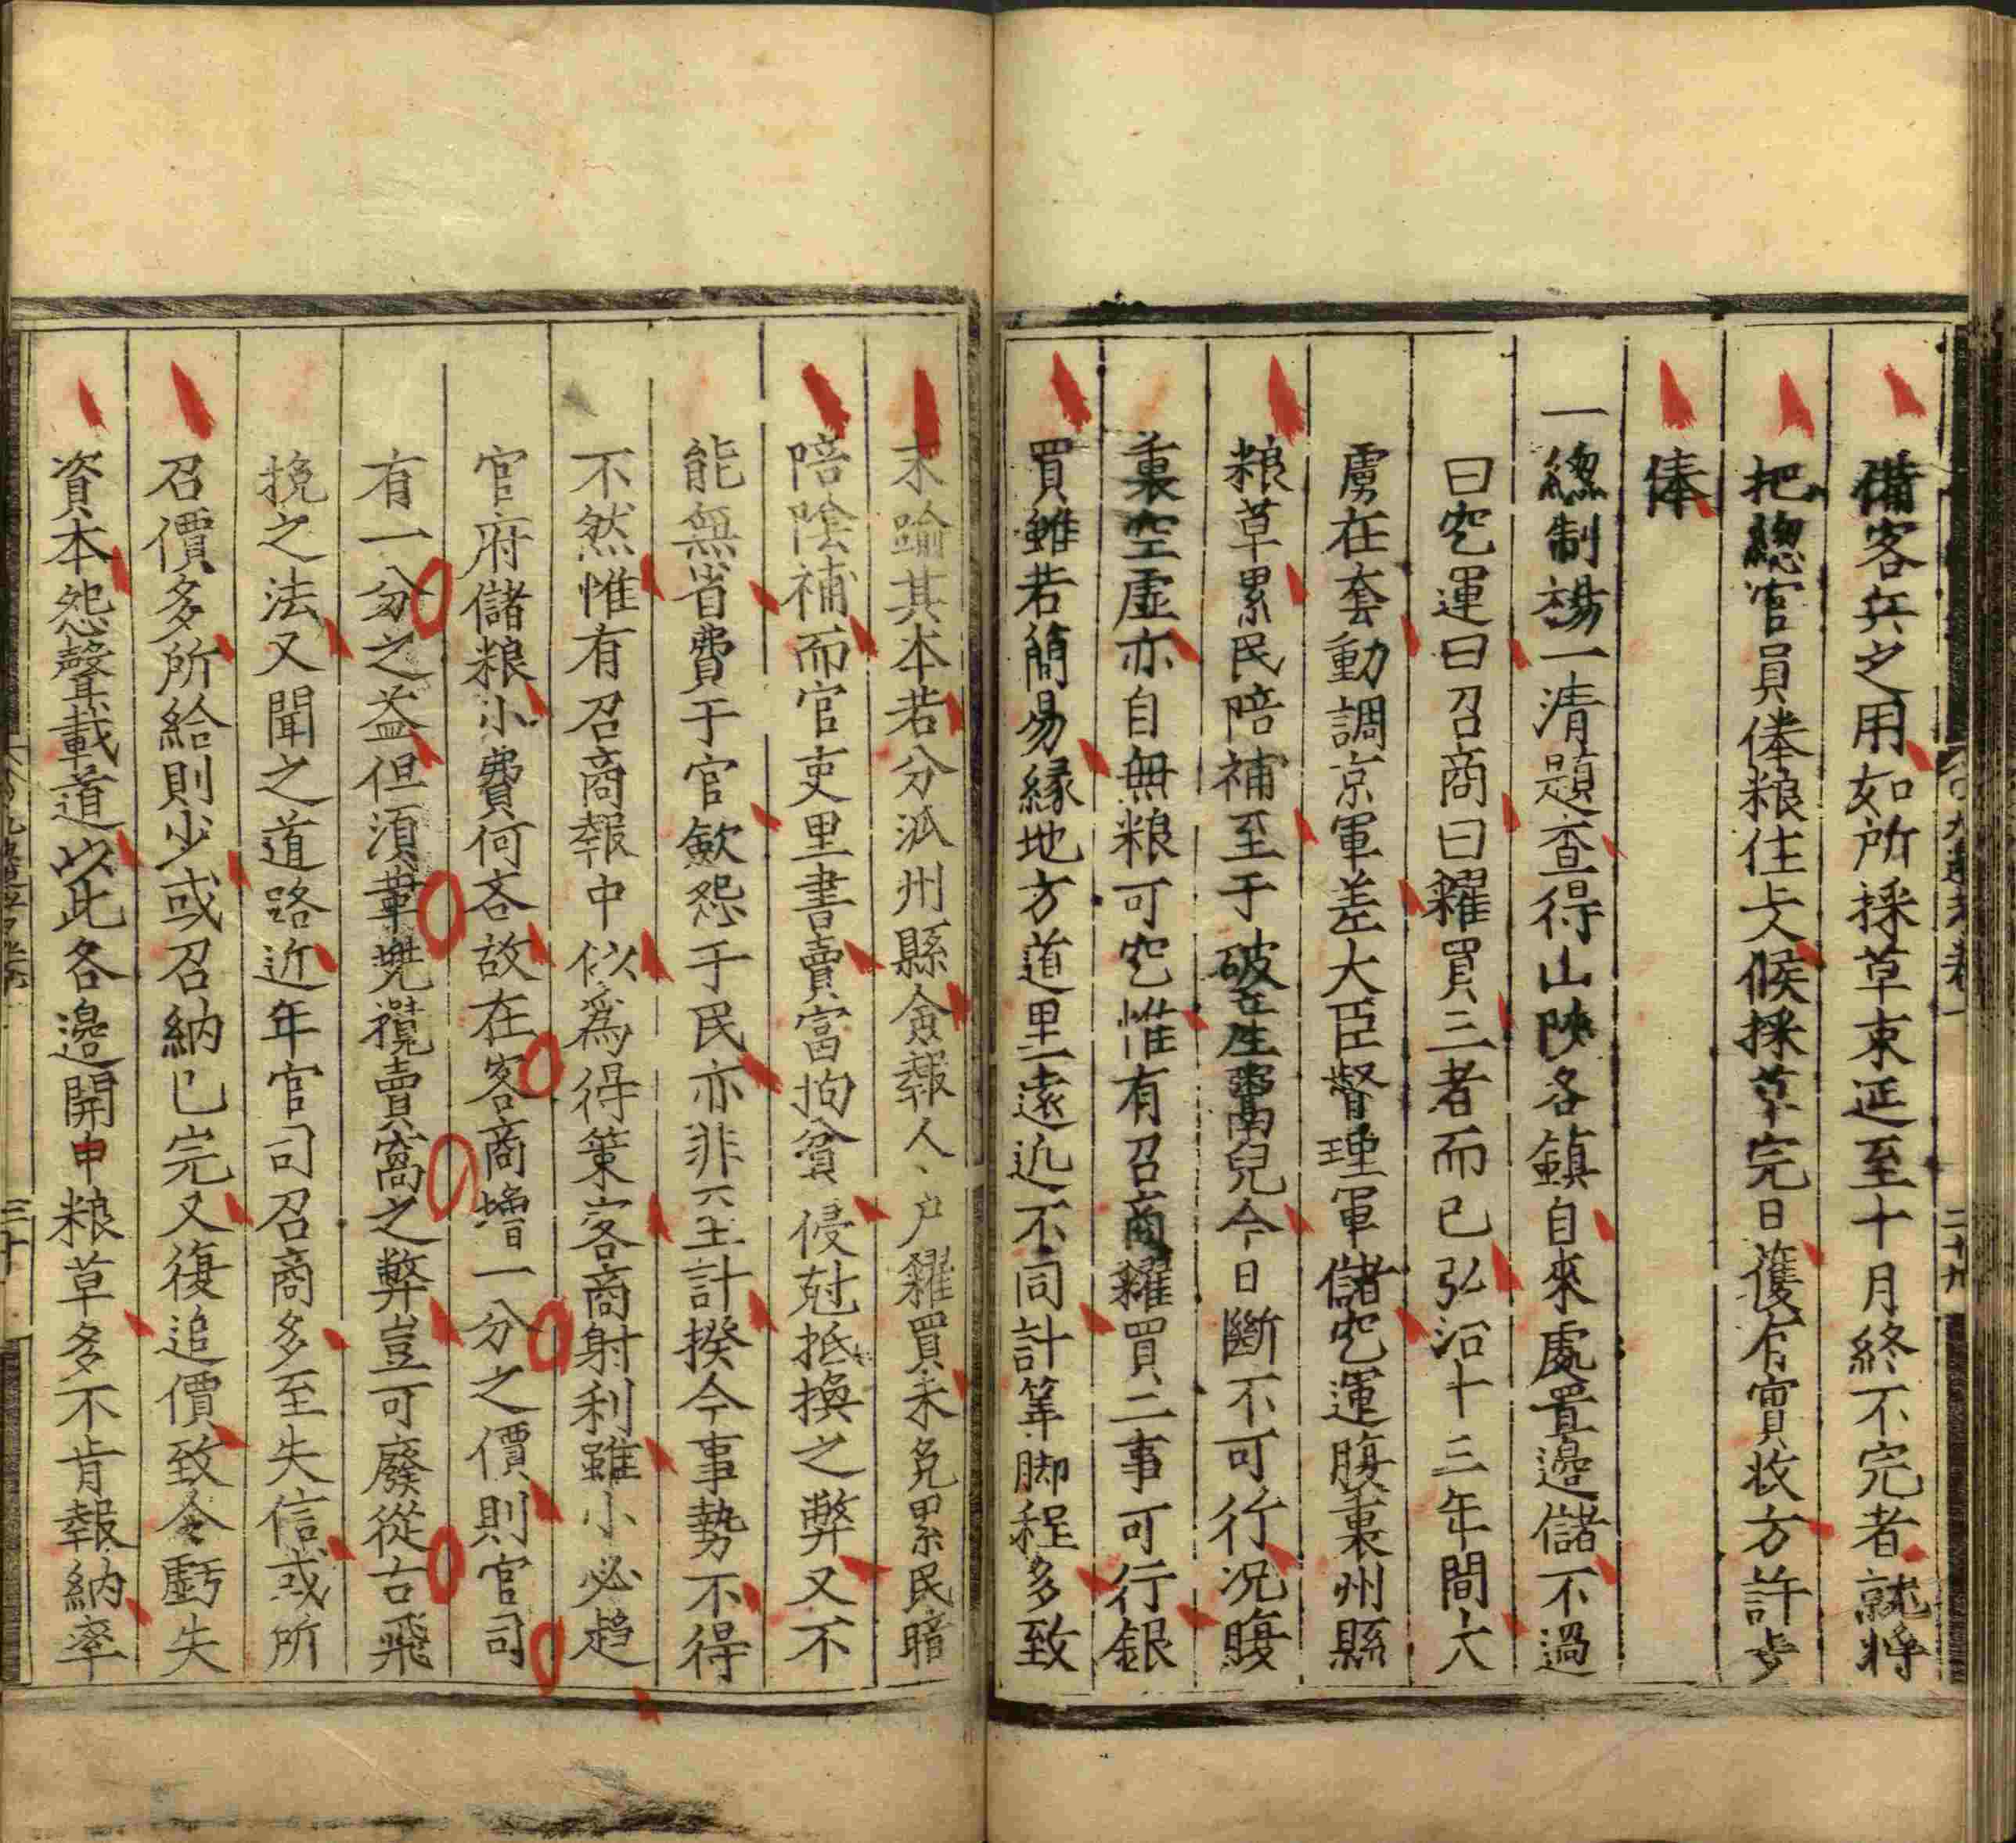 備客兵之用如所採草束延至十月終不完者就將
把緫官員俸粮住支候採草完日獲有實收方許步
俸
一緫制楊一清題查得山陜各鎮自來處置邊儲不過
曰空運曰召商曰糴買三者而已弘治十三年間大
虜在套動調京軍差大臣督理軍儲空運腹裏州縣
粮草累民陪補至于破産鬻兒今日斷不可行况腹
裏空虛亦自無粮可空惟有召商糴買二事可行銀
買雖若簡易緣地方道里遠近不同計筭脚程多致
末踰其本若分派州縣僉報人戶糴買未免累民暗
陪隂補而官吏里書賣富拘貧侵尅抵換之弊又不
能無省費于官歛怨于民亦非全計揆今事勢不得
不然惟有召商報中似爲得策客商射利雖小必趋
官府儲粮小費何吝故在客商增一分之價則官司
有一分之益但湏革兠攬賣窩之弊豈可廢從古飛
挽之法又聞之道路近年官司召商多至失信或所
召價多所給則少或召納已完又復追價致令虧失
資本怨聲載道以此各邊開中粮草多不肯報納率
二十九
三十